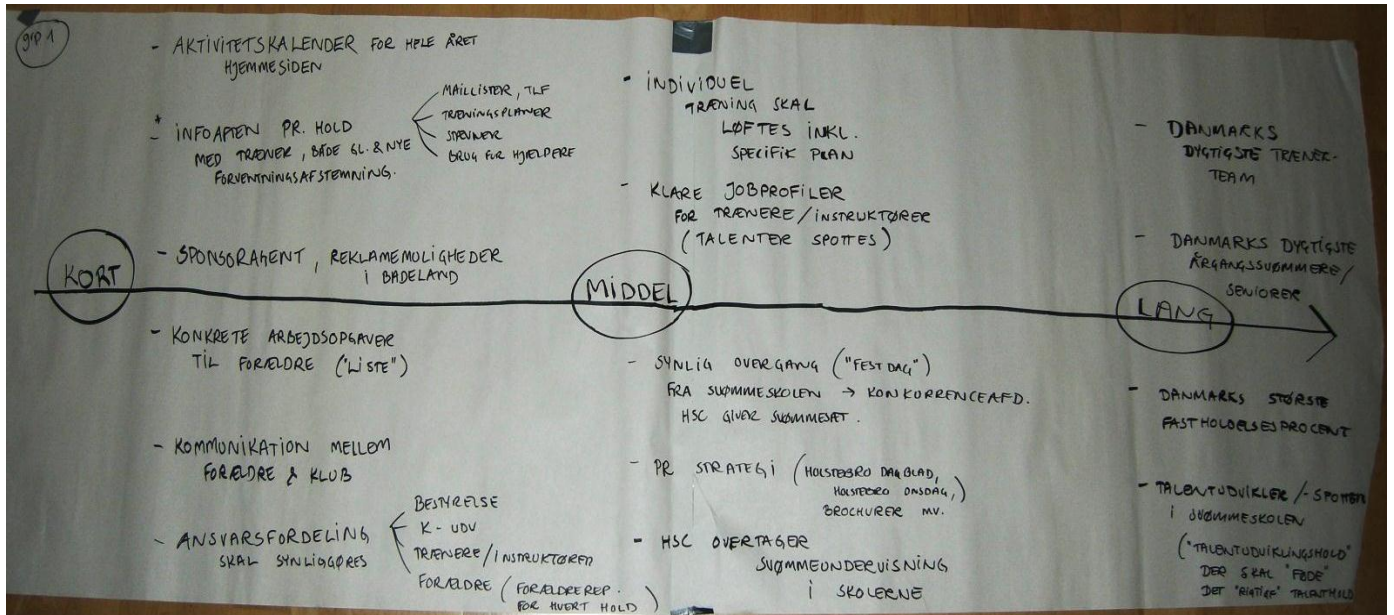 grp 1
- AKTIVITETSKALENDER FOR HELE ÅRET
HJEMMESIDEN
* - INFOAFTEN PR. HOLD
MED TRÆNER, BÅDE GL. & NYE
FORVENTNINGSAFSTEMNING.
MAILLISTER, TLF
TRÆNINGSPLANER
STÆVNER
BRUG FOR HJÆLPERE
- SPONSORAGENT, REKLAMEMULIGHEDER
I BADELAND
KORT
- KONKRETE ARBEJDSOPGAVER
TIL FORÆLDRE ("LISTE")
- KOMMUNIKATION MELLEM
FORÆLDRE & KLUB
- ANSVARSFORDELING
SKAL SYNLIGGØRES
BESTYRELSE
K-UDV
TRÆNERE/INSTRUKTØRER
FORÆLDRE (FORÆLDREREP.
FOR HVERT HOLD)
- INDIVIDUEL
TRÆNING SKAL
LØFTES INKL.
SPECIFIK PLAN
- KLARE JOBPROFILER
FOR TRÆNERE/INSTRUKTØRER
(TALENTER SPOTTES)
MIDDEL
- SYNLIG OVERGANG ("FESTDAG")
FRA SVØMMESKOLEN → KONKURRENCEAFD.
HSC GIVER SVØMMESÆT.
- PR STRATEGI (HOLSTEBRO DAGBLAD,
HOLSTEBRO ONSDAG,)
BROCHURER MV.
- HSC OVERTAGER
SVØMMEUNDERVISNING
I SKOLERNE
- DANMARKS
DYGTIGSTE TRÆNER-
TEAM
- DANMARKS DYGTIGSTE
ÅRGANGSSVØMMERE/
SENIORER
LANG
- DANMARKS STØRSTE
FASTHOLDELSESPROCENT
- TALENTUDVIKLER/-SPOTTER
I SVØMMESKOLEN
("TALENTUDVIKLINGSHOLD"
DER SKAL "FØDE"
DET "RIGTIGE" TALENTHOLD